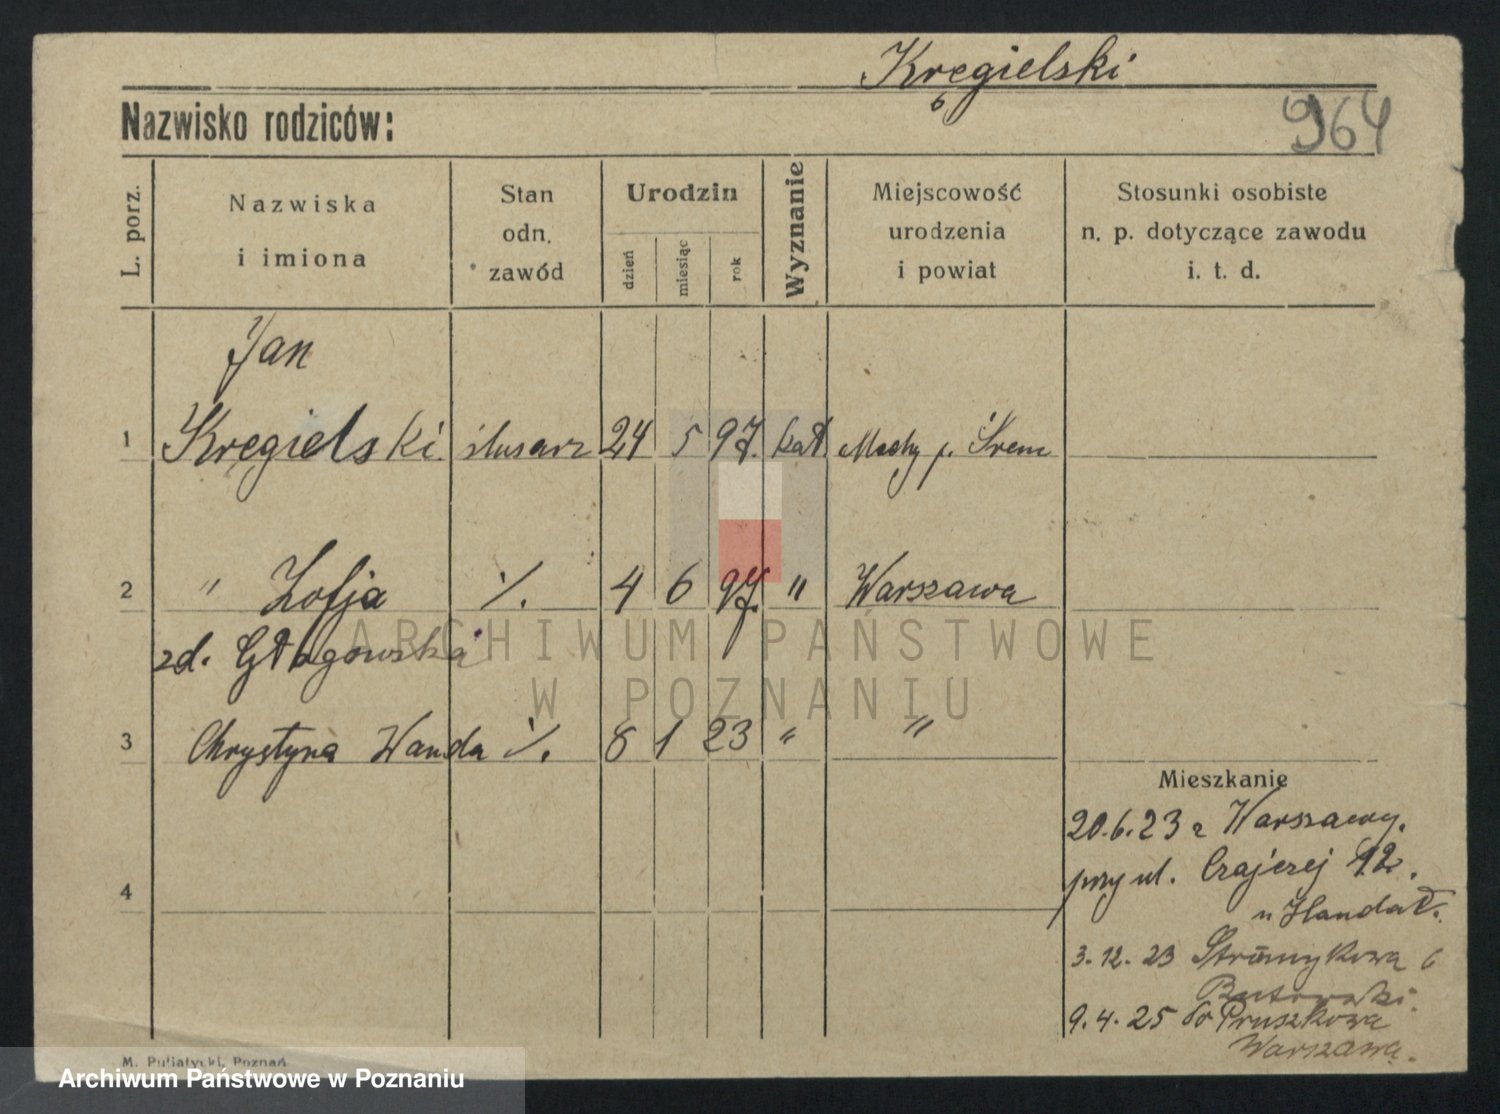 Kręgielski
Nazwisko rodziców:
964
L. porz.
Nazwiska
i imiona
Stan
odn.
zawód
Urodzin
dzień
miesiąc
rok
Wyznanie
Miejscowość
urodzenia
i powiat
Stosunki osobiste
n. p. dotyczące zawodu
i. t. d.
Jan
1 Kręgielski ślusarz 24 5 97. kat. Mochy p. Śrem
2 " Zofja ·/. 4 6 97. " Warszawa
zd. Głogowska
3 Chrystyna Wanda ·/. 8 1 23 " "
Mieszkanie
20.6.23 z Warszawy.
przy ul. Czajczej 12.
4
u Handat.
3.12.23 Strumykowa 6
9.4.25 do Pruszkowa
Warszawa.
M. Putiatycki, Poznań
ARCHIWUM PAŃSTWOWE
W POZNANIU
Archiwum Państwowe w Poznaniu